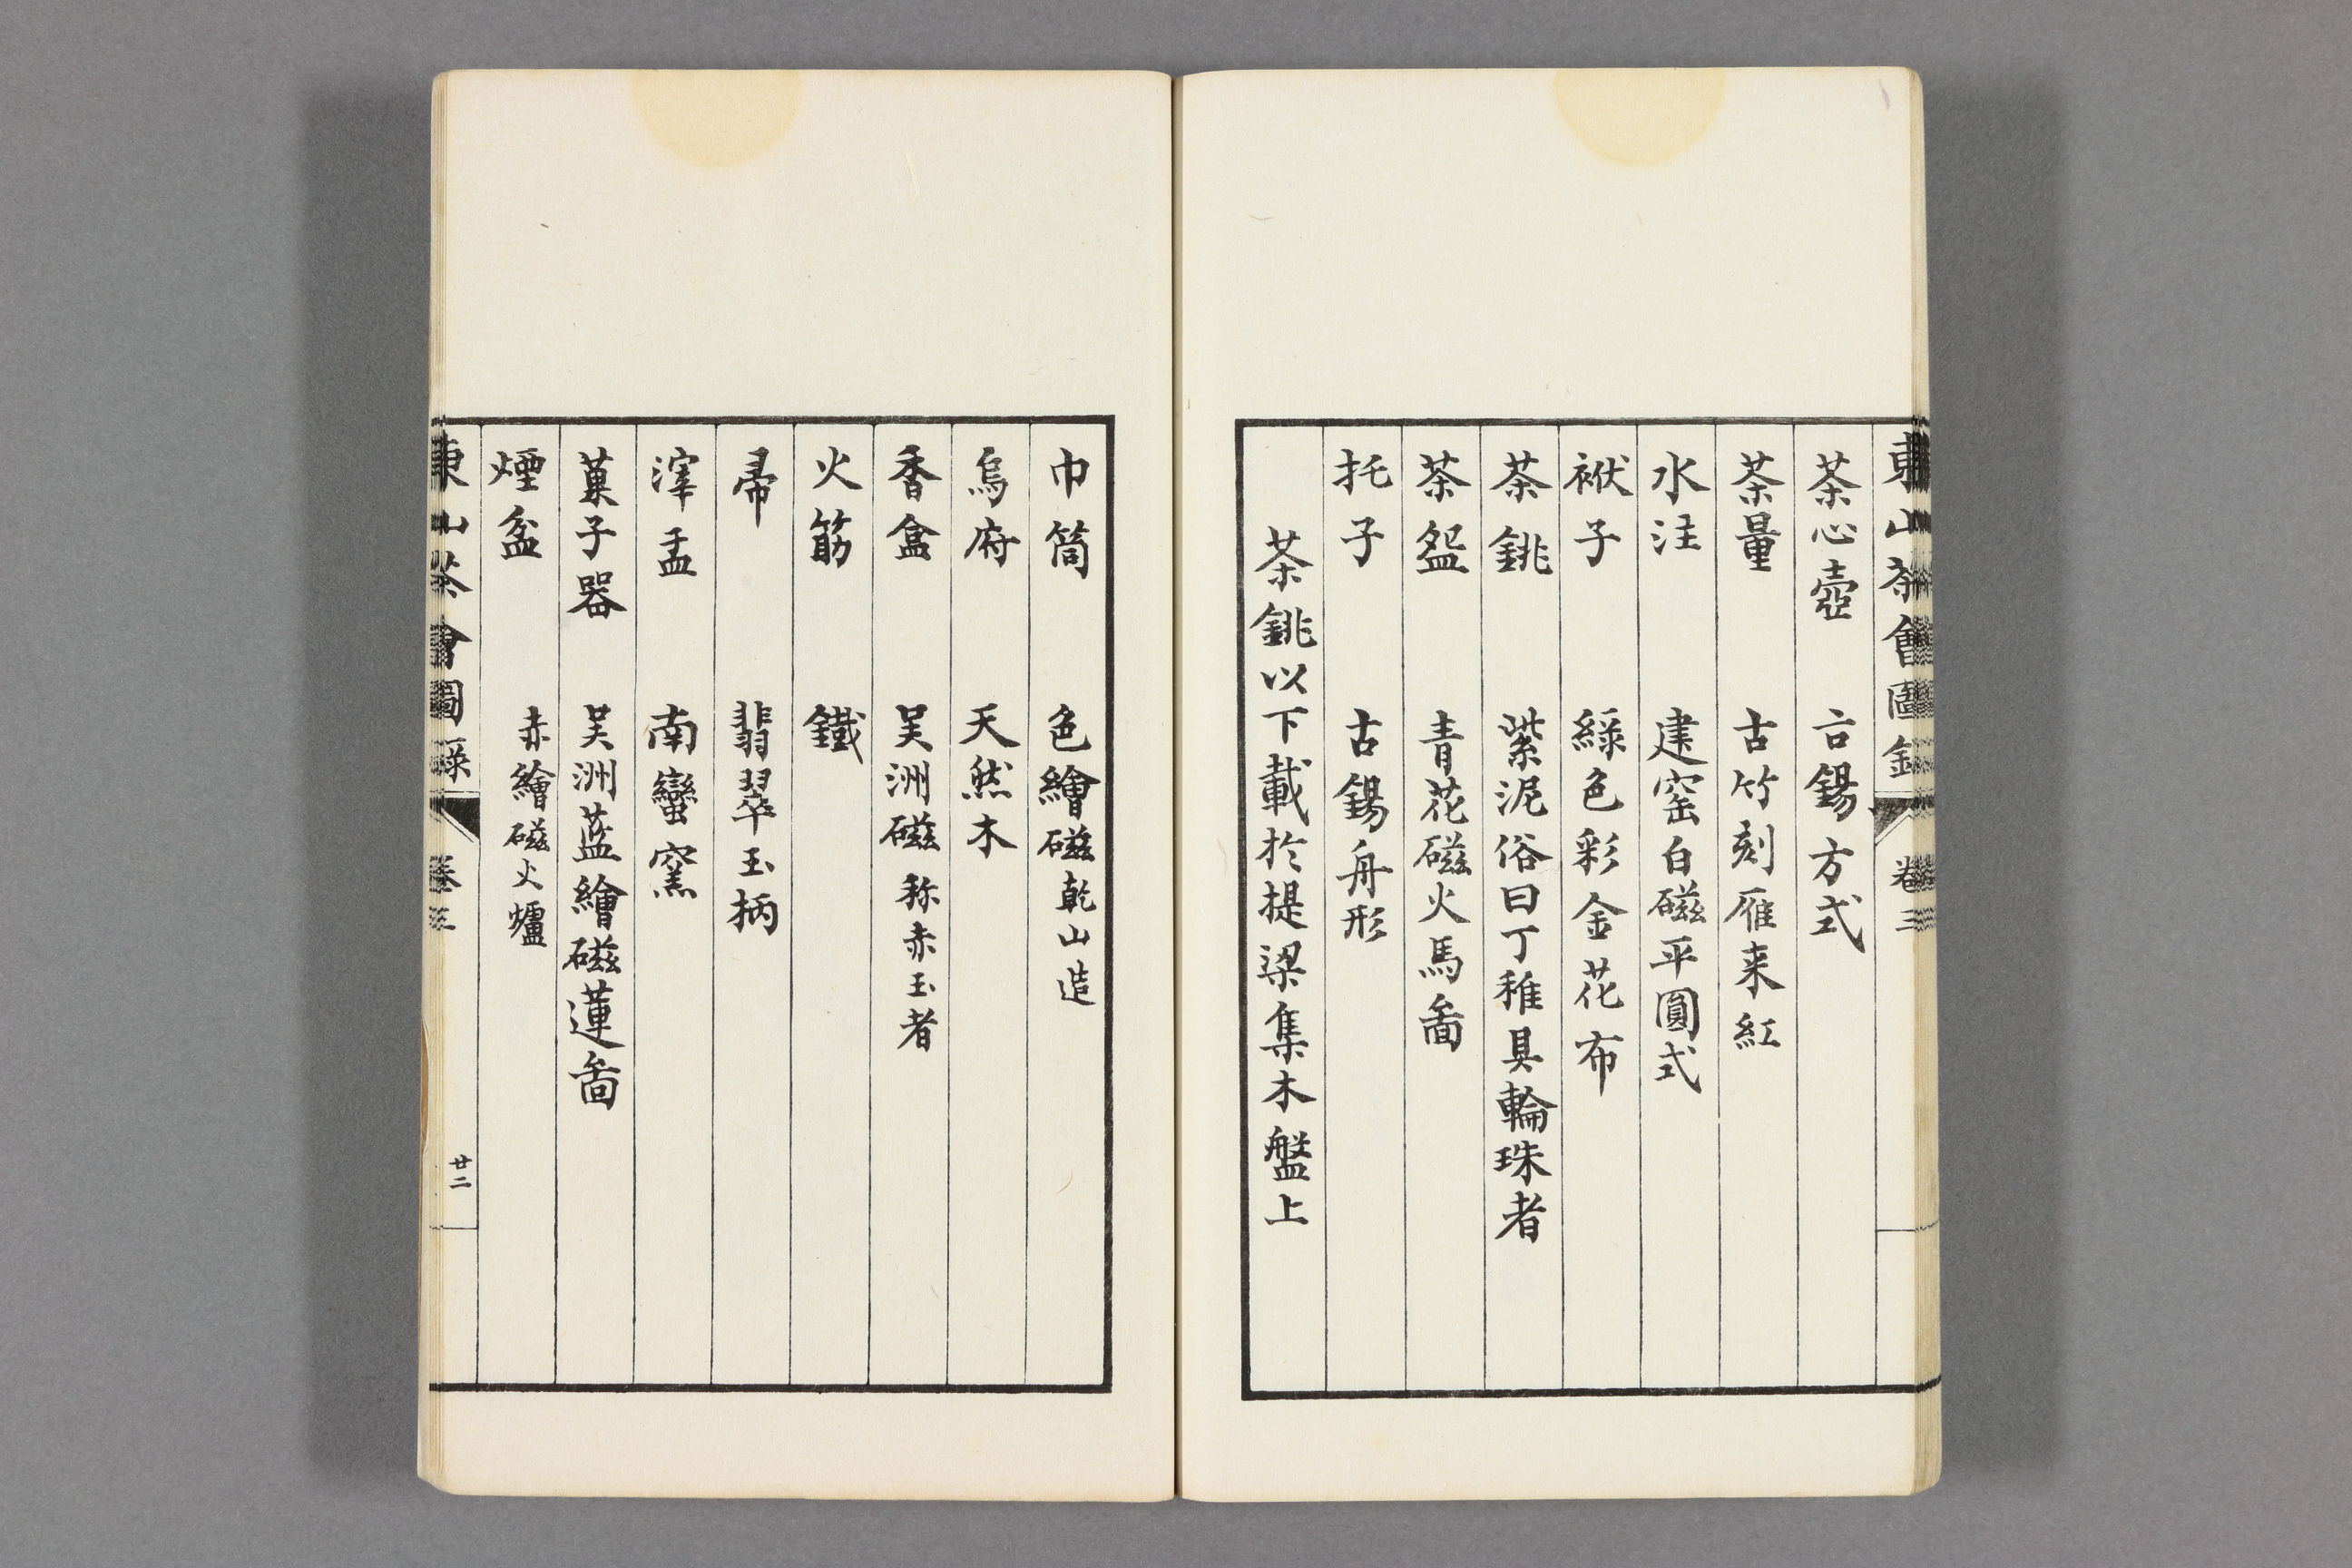 東山茶會圖錄 卷三
茶心壺 古錫方式
茶量 古竹刻雁来紅
水注 建窑白磁平圓式
袱子 綠色彩金花布
茶銚 紫泥俗曰丁稚具輪珠者
茶盌 青花磁火馬啚
托子 古錫舟形
茶銚以下載於提梁集木盤上
巾筒 色繪磁乾山造
烏府 天然木
香盒 吴洲磁称赤玉者
火筯 鐵
帚 翡翠玉柄
滓盂 南蠻窯
菓子器 吴洲藍繪磁蓮啚
煙盆 赤繪磁火爐
東山茶會圖録 卷三 廿二